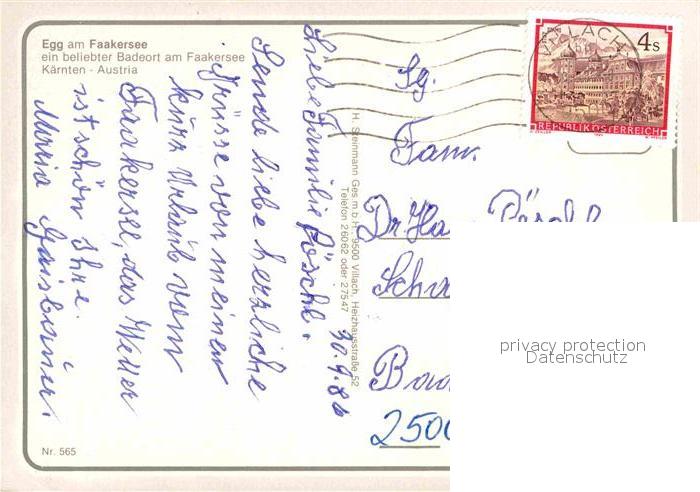 Egg am Faakersee
ein beliebter Badeort am Faakersee
Kärnten - Austria
Liebe Familie Pöschl.
Sende liebe herzliche
Grüsse von meinen
kurz Urlaub vom
Faakersee, das Wetter
ist schön Ihre.
Maria
30.9.86
H. Steinmann Ges.m.b.H. 9500 Villach, Heizhausstraße 52
Telefon 26062 oder 27547
VILLACH
4s
REPUBLIK ÖSTERREICH
Sg.
Fam.
Dr. Ha
250
privacy protection
Datenschutz
Nr. 565